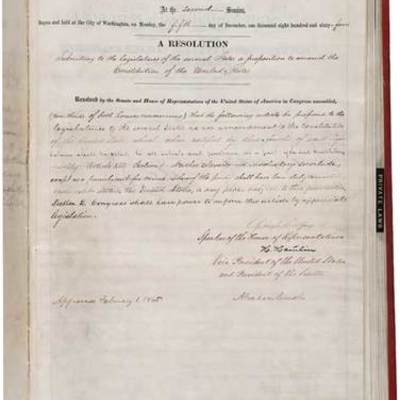 At the second Session,
Begun and held at the City of Washington, on Monday, the fifth day of December, one thousand eight hundred and sixty-four
A RESOLUTION
Submitting to the legislatures of the several States a proposition to amend the
Constitution of the United States.
Resolved by the Senate and House of Representatives of the United States of America in Congress assembled,
(two-thirds of both houses concurring) that the following article be proposed to the
legislatures of the several States as an amendment to the constitution
of the United States, which, when ratified by three fourths of said
shall be valid, to all intents and purposes, as a part of the said Constitution
namely: Article XIII. Section 1. Neither slavery nor involuntary servitude,
except as a punishment for crime whereof the party shall have been duly
shall exist within the United States, or any place subject to their jurisdiction.
Section 2. Congress shall have power to enforce this article by appropriate
legislation.
Speaker of the House of Representatives
H. Hamlin
Vice President of the United States
and President of the Senate
Approved February 1. 1865
Abraham Lincoln
PRIVATE LAWS